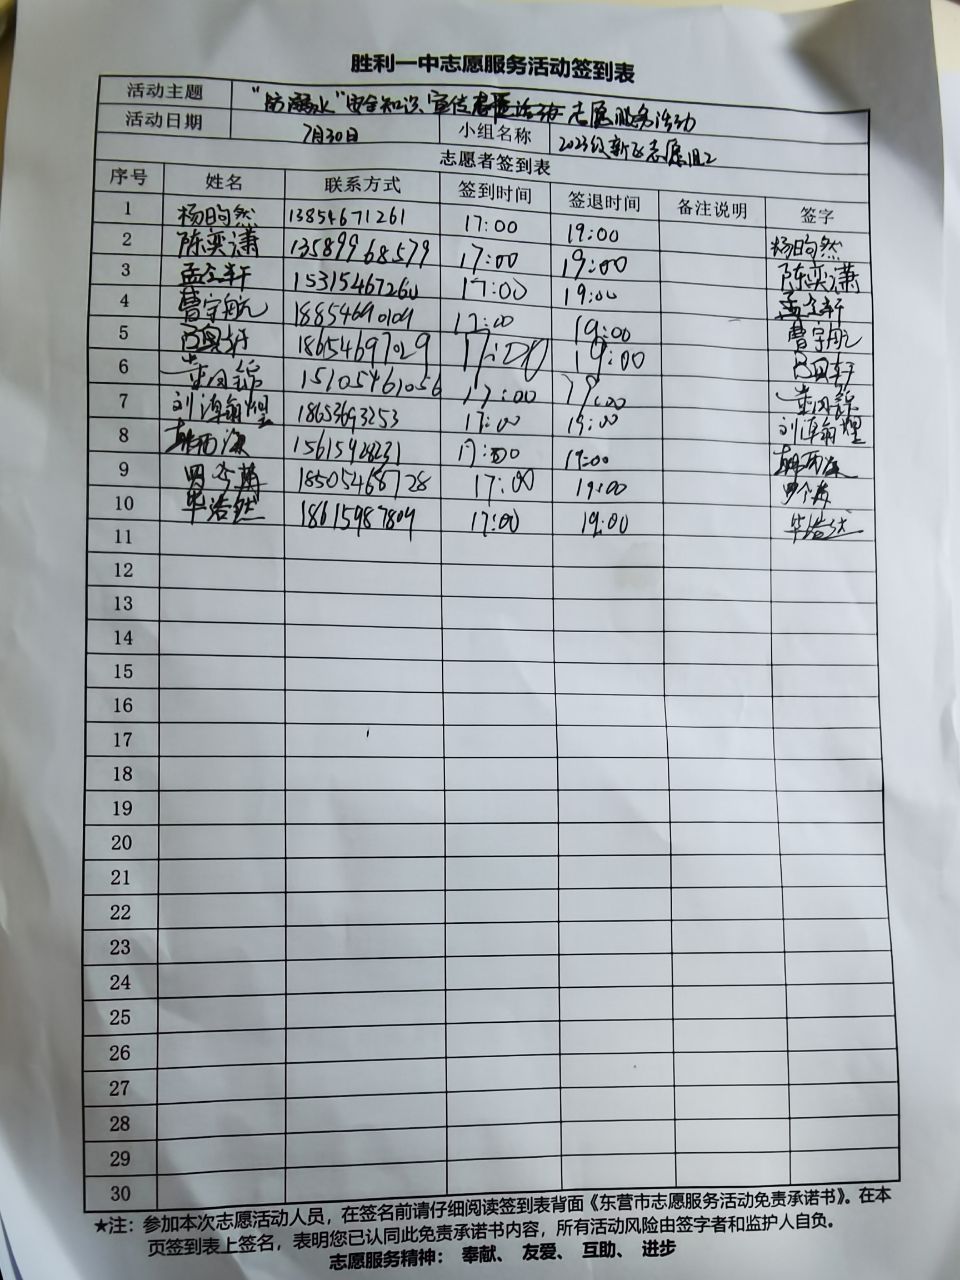 胜利一中志愿服务活动签到表
活动主题 "防溺水"安全知识宣传 活动 志愿服务活动
活动日期 7月30日 小组名称 2023级新区志愿组2
志愿者签到表
序号 姓名 联系方式 签到时间 签退时间 备注说明 签字
1 杨昀然 13854671261 17:00 19:00 杨昀然
2 陈奕潇 13589968579 17:00 19:00 陈奕潇
3 15315467260 17:00 19:00
4 曹宇航 17:00 19:00 曹宇航
5 18654697029 17:00 19:00
6 15105461056 17:00 19:00
7 18653693253 17:00 19:00
8 17:00 19:00
9 18505468728 17:00 19:00
10 毕浩然 18615987809 17:00 19:00 毕浩然
11
12
13
14
15
16
17
18
19
20
21
22
23
24
25
26
27
28
29
30
★注：参加本次志愿活动人员，在签名前请仔细阅读签到表背面《东营市志愿服务活动免责承诺书》。在本
页签到表上签名，表明您已认同此免责承诺书内容，所有活动风险由签字者和监护人自负。
志愿服务精神： 奉献、 友爱、 互助、 进步